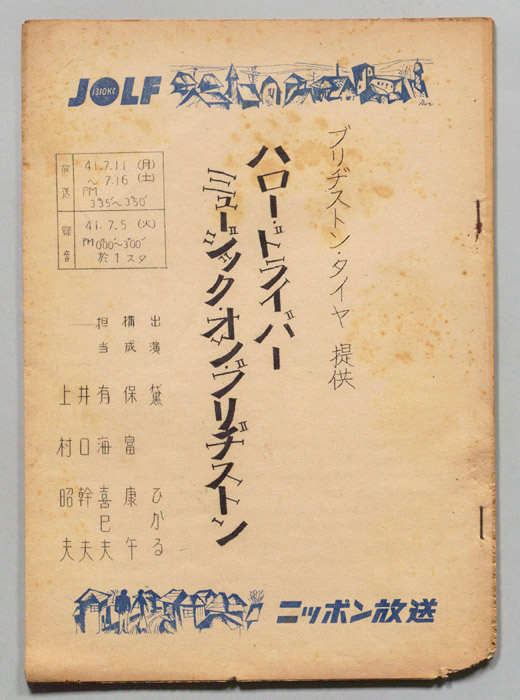 JOLF
1310KC
ブリヂストン・タイヤ 提供
ハロー・ドライバー
ミュージック・オン・ブリヂストン
放送
41.7.11 (月)
～ 7.16 (土)
PM
3°35'~3°50'
録音
41.7.5 (火)
PM 0°00'~3°00'
於 1スタ
出演 黛 ひかる
構成 保富 康午
担当 有海 喜巳夫
井口 幹夫
上村 昭夫
ニッポン放送